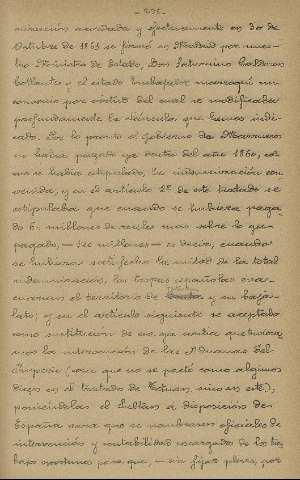 nización acordada y efectivamente en 30 de
Octubre de 1861 se firmó en Madrid por nues-
tro Ministro de Estado, Don Saturnino Calderón
Collantes y el citado Embajador marroquí un
convenio por virtud del cual se modificaba
profundamente la cláusula que hemos indi-
cado. Por lo pronto el Gobierno de Marruecos
no había pagado ya dentro del año 1860, co-
mo se había estipulado, la indemnización con-
venida, y en el artículo 1º de este tratado se
estipulaba que cuando se hubiera paga-
do 6 millones de reales mas sobre lo ya
pagado, — millones — es decir, cuando
se hubiera satisfecho la mitad de la total
indemnización, las tropas españolas eva-
cuarían el territorio de y su baja-
lato; y en el artículo siguiente se aceptaba
como sustitución de esa garantía
mos la intervención de las Aduanas del
Imperio (cosa que no se pactó como algunos
dicen en el tratado de Tetuan, sino en este),
poniéndolas el Sultán a disposición de
España para que se nombrasen oficiales de
intervención y contabilidad encargados de los tra-
bajos para que, — sin fijar plazo, por